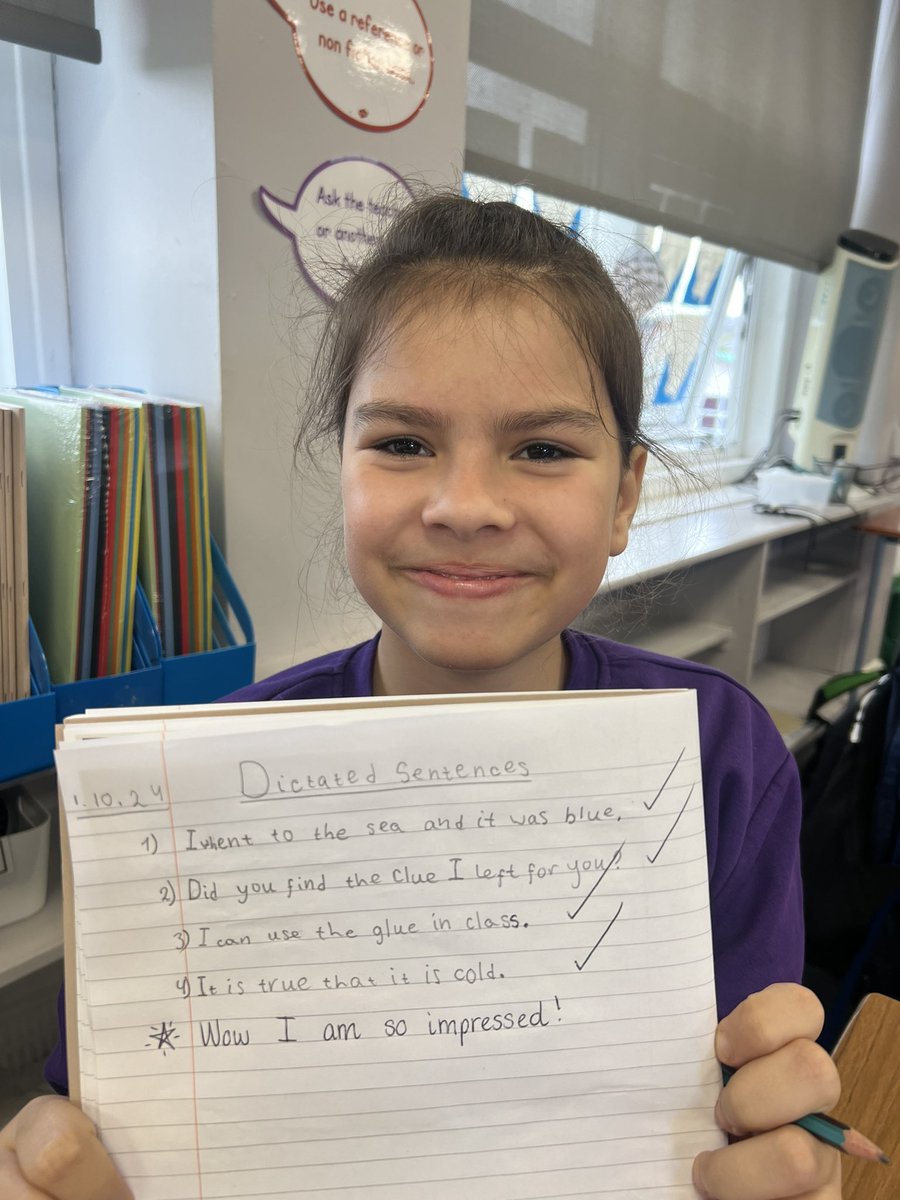 Use a reference or
non fiction book.
Ask the teacher
or another
Dictated Sentences
1.10.24
1) I whent to the sea and it was blue.
2) Did you find the clue I left for you?
3) I can use the glue in class.
4) It is true that it is cold.
Wow I am so impressed!